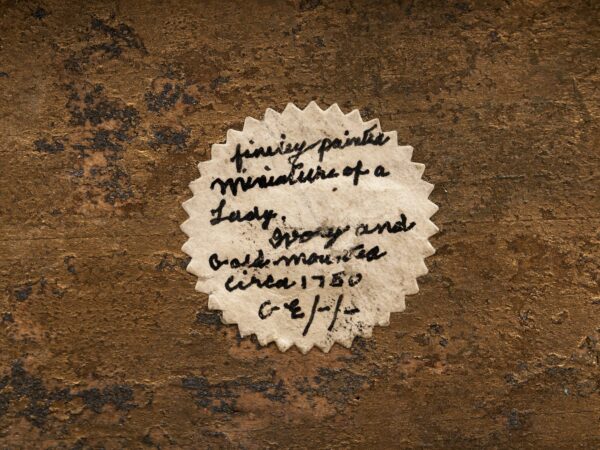 finely painted
Miniature of a
Lady.
Ivory and
Gold mounted
Circa 1750
G E/-/-